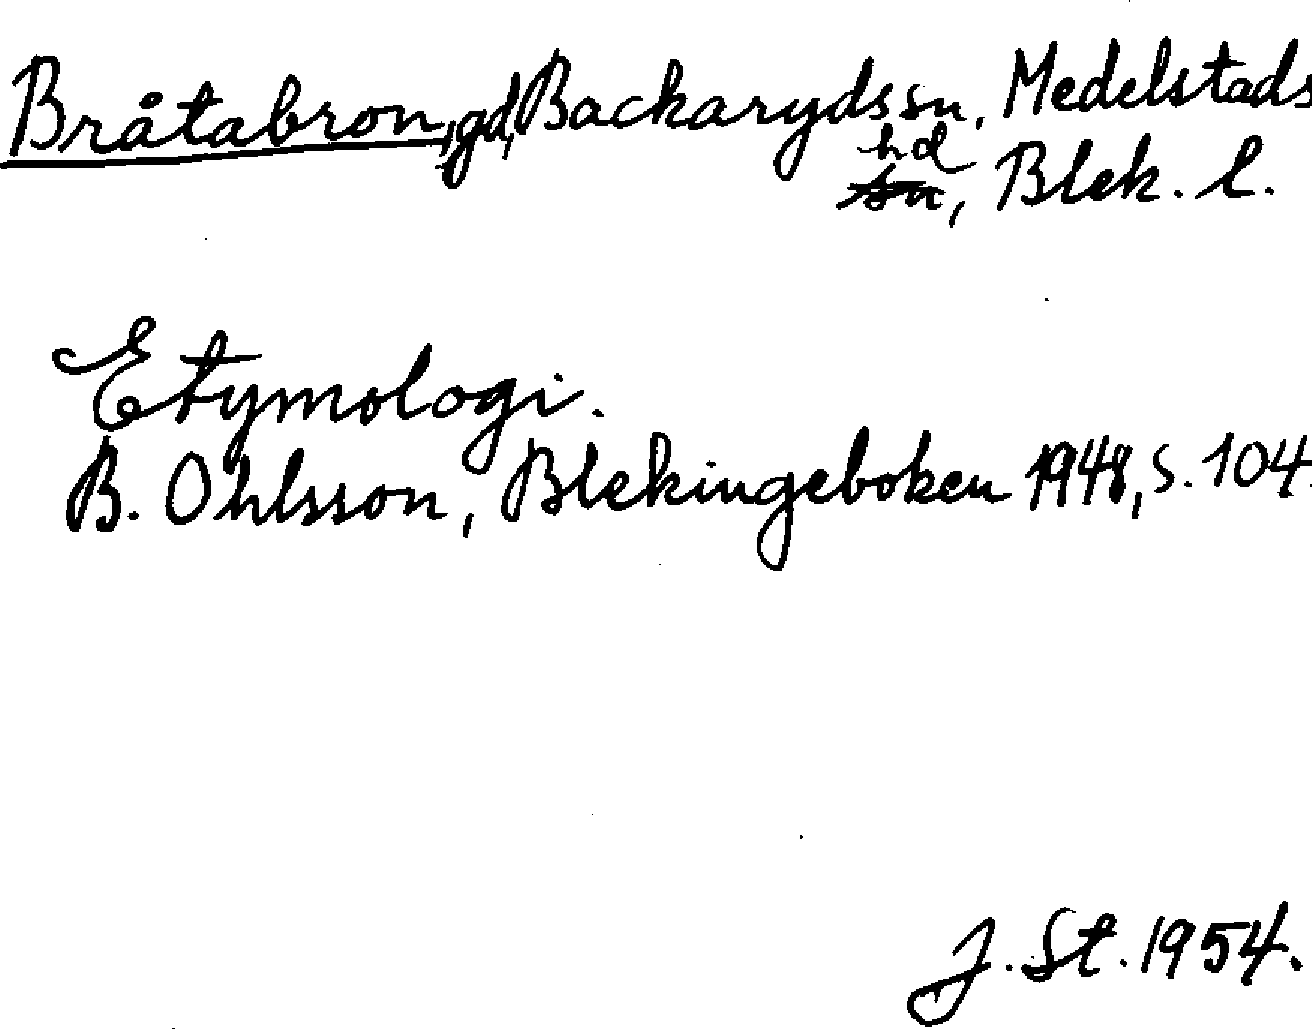 Bråtabron, gd, Backaryds sn, Medelstads
hd, Blek. l.
Etymologi.
B. Ohlsson, Blekingeboken 1948, s. 104.
J. St. 1954.